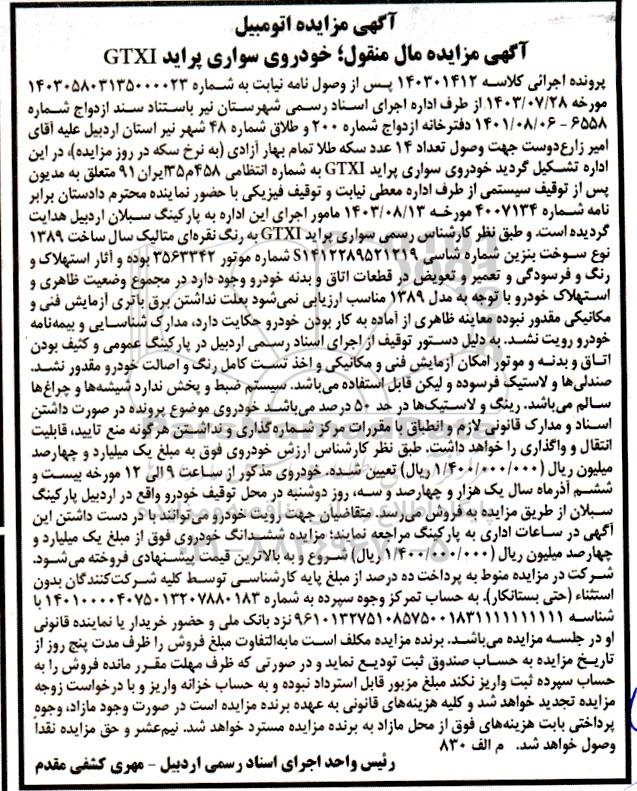 آگهی مزایده اتومبیل
آگهی مزایده مال منقول؛ خودروی سواری پراید GTXI
پرونده اجرائی کلاسه ۱۴۰۳۰۱۴۱۲ پس از وصول نامه نیابت به شماره ۱۴۰۳۰۵۸۰۳۱۳۵۰۰۰۰۲۳
مورخه ۱۴۰۳/۰۷/۲۸ از طرف اداره اجرای اسناد رسمی شهرستان نیر باستناد سند ازدواج شماره
۶۵۵۸ - ۱۴۰۱/۰۸/۰۶ دفترخانه ازدواج شماره ۲۰۰ و طلاق شماره ۴۸ شهر نیر استان اردبیل علیه آقای
امیر زارع‌دوست جهت وصول تعداد ۱۴ عدد سکه طلا تمام بهار آزادی (به نرخ سکه در روز مزایده)، در این
اداره تشکیل گردید خودروی سواری پراید GTXI به شماره انتظامی ۴۵۸م۳۵ایران ۹۱ متعلق به مدیون
پس از توقیف سیستمی از طرف اداره معطی نیابت و توقیف فیزیکی با حضور نماینده محترم دادستان برابر
نامه شماره ۴۰۰۷۱۳۴ مورخه ۱۴۰۳/۰۸/۱۳ مامور اجرای این اداره به پارکینگ سبلان اردبیل هدایت
گردیده است. و طبق نظر کارشناس رسمی سواری پراید GTXI به رنگ نقره‌ای متالیک سال ساخت ۱۳۸۹
نوع سوخت بنزین شماره شاسی S۱۴۱۲۲۸۹۵۲۱۲۱۹ شماره موتور ۳۵۶۳۳۴۲ بوده و آثار استهلاک و
رنگ و فرسودگی و تعمیر و تعویض در قطعات اتاق و بدنه خودرو وجود دارد در مجموع وضعیت ظاهری و
استهلاک خودرو با توجه به مدل ۱۳۸۹ مناسب ارزیابی نمی‌شود بعلت نداشتن برق باتری آزمایش فنی و
مکانیکی مقدور نبوده معاینه ظاهری از آماده به کار بودن خودرو حکایت دارد، مدارک شناسایی و بیمه‌نامه
خودرو رویت نشد. به دلیل دستور توقیف از اجرای اسناد رسمی اردبیل در پارکینگ عمومی و کثیف بودن
اتاق و بدنه و موتور امکان آزمایش فنی و مکانیکی و اخذ تست کامل رنگ و اصالت خودرو مقدور نشد.
صندلی‌ها و لاستیک فرسوده و لیکن قابل استفاده می‌باشد. سیستم ضبط و پخش ندارد شیشه‌ها و چراغ‌ها
سالم می‌باشد. رینگ و لاستیک‌ها در حد ۵۰ درصد می‌باشد خودروی موضوع پرونده در صورت داشتن
اسناد و مدارک قانونی لازم و انطباق با مقررات مرکز شماره‌گذاری و نداشتن هرگونه منع تایید، قابلیت
انتقال و واگذاری را خواهد داشت. طبق نظر کارشناس ارزش خودروی فوق به مبلغ یک میلیارد و چهارصد
میلیون ریال (۱/۴۰۰/۰۰۰/۰۰۰ ریال) تعیین شده. خودروی مذکور از ساعت ۹ الی ۱۲ مورخه بیست و
ششم آذرماه سال یک هزار و چهارصد و سه، روز دوشنبه در محل توقیف خودرو واقع در اردبیل پارکینگ
سبلان از طریق مزایده به فروش می‌رسد. متقاضیان جهت رویت خودرو می‌توانند با در دست داشتن این
آگهی در ساعات اداری به پارکینگ مراجعه نمایند؛ مزایده ششدانگ خودروی فوق از مبلغ یک میلیارد و
چهارصد میلیون ریال (۱/۴۰۰/۰۰۰/۰۰۰ ریال) شروع و به بالاترین قیمت پیشنهادی فروخته می‌شود.
شرکت در مزایده منوط به پرداخت ده درصد از مبلغ پایه کارشناسی توسط کلیه شرکت‌کنندگان بدون
استثناء (حتی بستانکار). به حساب تمرکز وجوه سپرده به شماره ۱۴۰۱۰۰۰۰۴۰۷۵۰۱۳۲۰۷۸۸۰۱۸۳ با
شناسه ۹۶۱۰۱۳۲۷۵۱۰۸۵۷۵۰۰۱۸۳۱۱۱۱۱۱۱۱۱۱ نزد بانک ملی و حضور خریدار یا نماینده قانونی
او در جلسه مزایده می‌باشد. برنده مزایده مکلف است مابه‌التفاوت مبلغ فروش را ظرف مدت پنج روز از
تاریخ مزایده به حساب صندوق ثبت تودیع نماید و در صورتی که ظرف مهلت مقرر مانده فروش را به
حساب سپرده ثبت واریز نکند مبلغ مزبور قابل استرداد نبوده و به حساب خزانه واریز و با درخواست زوجه
مزایده تجدید خواهد شد و کلیه هزینه‌های قانونی به عهده برنده مزایده است در صورت وجود مازاد، وجوه
پرداختی بابت هزینه‌های فوق از محل مازاد به برنده مزایده مسترد خواهد شد. نیم‌عشر و حق مزایده نقداً
وصول خواهد شد. م الف ۸۳۰
رئیس واحد اجرای اسناد رسمی اردبیل - مهری کشفی مقدم